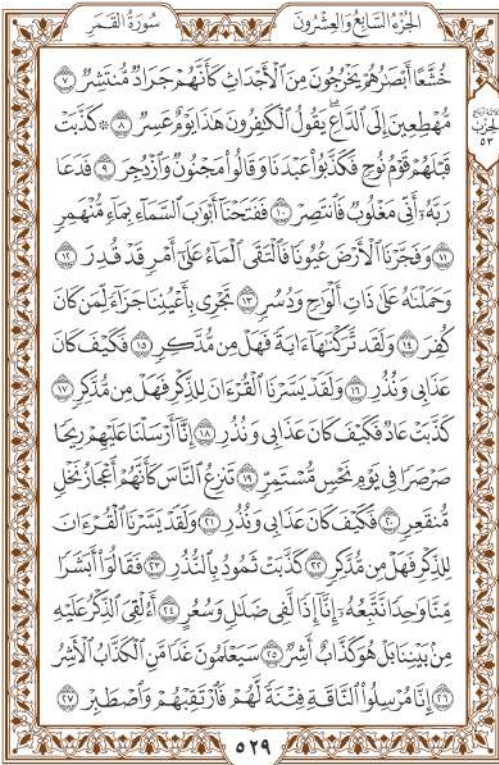 الجُزْءُ السَّابِعُ وَالعِشْرُونَ سُورَةُ القَمَرِ
خُشَّعًا أَبْصَٰرُهُمْ يَخْرُجُونَ مِنَ ٱلْأَجْدَاثِ كَأَنَّهُمْ جَرَادٌ مُّنتَشِرٌ ٧
مُّهْطِعِينَ إِلَى ٱلدَّاعِ ۖ يَقُولُ ٱلْكَٰفِرُونَ هَٰذَا يَوْمٌ عَسِرٌ ٨ ۞ كَذَّبَتْ
قَبْلَهُمْ قَوْمُ نُوحٍ فَكَذَّبُوا۟ عَبْدَنَا وَقَالُوا۟ مَجْنُونٌ وَٱزْدُجِرَ ٩ فَدَعَا
رَبَّهُۥٓ أَنِّى مَغْلُوبٌ فَٱنتَصِرْ ١٠ فَفَتَحْنَآ أَبْوَٰبَ ٱلسَّمَآءِ بِمَآءٍ مُّنْهَمِرٍ
١١ وَفَجَّرْنَا ٱلْأَرْضَ عُيُونًا فَٱلْتَقَى ٱلْمَآءُ عَلَىٰٓ أَمْرٍ قَدْ قُدِرَ ١٢
وَحَمَلْنَٰهُ عَلَىٰ ذَاتِ أَلْوَٰحٍ وَدُسُرٍ ١٣ تَجْرِى بِأَعْيُنِنَا جَزَآءً لِّمَن كَانَ
كُفِرَ ١٤ وَلَقَد تَّرَكْنَٰهَآ ءَايَةً فَهَلْ مِن مُّدَّكِرٍ ١٥ فَكَيْفَ كَانَ
عَذَابِى وَنُذُرِ ١٦ وَلَقَدْ يَسَّرْنَا ٱلْقُرْءَانَ لِلذِّكْرِ فَهَلْ مِن مُّدَّكِرٍ ١٧
كَذَّبَتْ عَادٌ فَكَيْفَ كَانَ عَذَابِى وَنُذُرِ ١٨ إِنَّآ أَرْسَلْنَا عَلَيْهِمْ رِيحًا
صَرْصَرًا فِى يَوْمِ نَحْسٍ مُّسْتَمِرٍّ ١٩ تَنزِعُ ٱلنَّاسَ كَأَنَّهُمْ أَعْجَازُ نَخْلٍ
مُّنقَعِرٍ ٢٠ فَكَيْفَ كَانَ عَذَابِى وَنُذُرِ ٢١ وَلَقَدْ يَسَّرْنَا ٱلْقُرْءَانَ
لِلذِّكْرِ فَهَلْ مِن مُّدَّكِرٍ ٢٢ كَذَّبَتْ ثَمُودُ بِٱلنُّذُرِ ٢٣ فَقَالُوٓا۟ أَبَشَرًا
مِّنَّا وَٰحِدًا نَّتَّبِعُهُۥٓ إِنَّآ إِذًا لَّفِى ضَلَٰلٍ وَسُعُرٍ ٢٤ أَءُلْقِىَ ٱلذِّكْرُ عَلَيْهِ
مِنۢ بَيْنِنَا بَلْ هُوَ كَذَّابٌ أَشِرٌ ٢٥ سَيَعْلَمُونَ غَدًا مَّنِ ٱلْكَذَّابُ ٱلْأَشِرُ
٢٦ إِنَّا مُرْسِلُوا۟ ٱلنَّاقَةِ فِتْنَةً لَّهُمْ فَٱرْتَقِبْهُمْ وَٱصْطَبِرْ ٢٧
الحِزْبِ
٥٣
٥٢٩